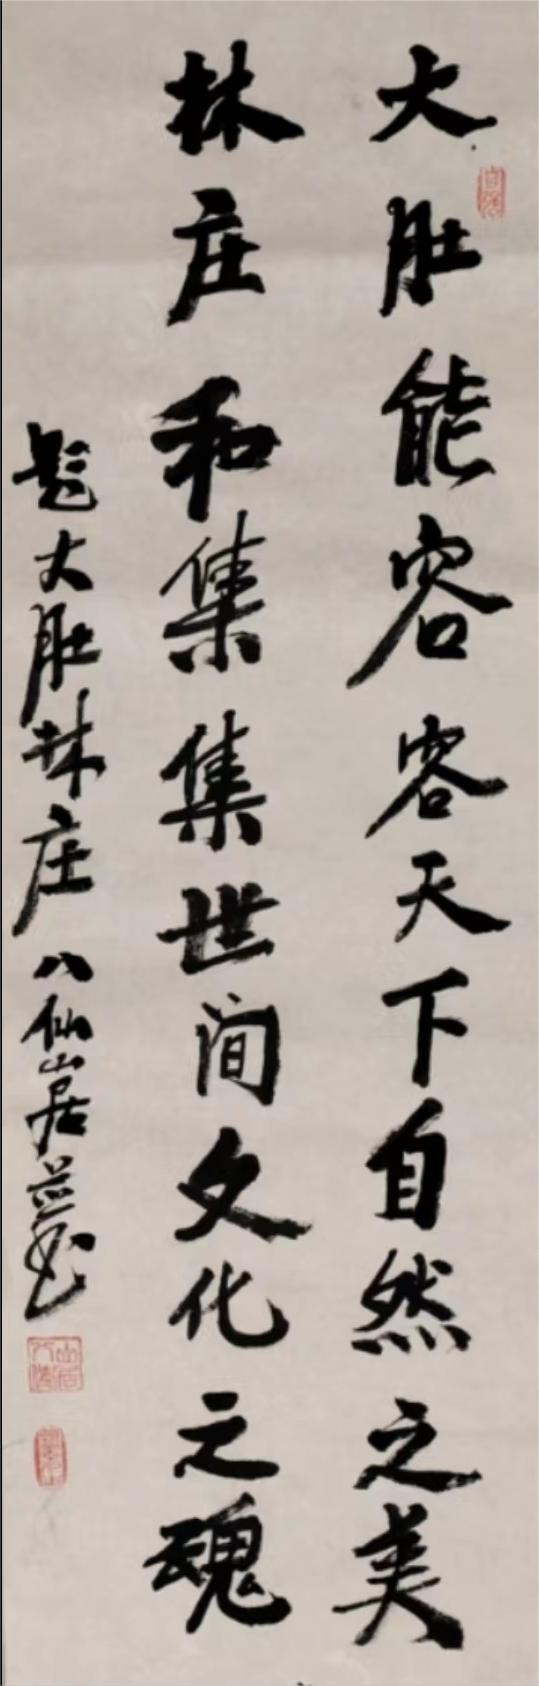 大肚能容容天下自然之美
林庄和集集世间文化之魂
题大肚林庄八仙山居